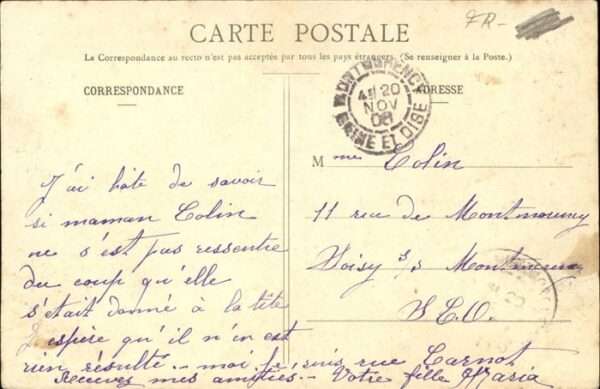 FR-
CARTE POSTALE
La Correspondance au recto n'est pas acceptée par tous les pays étrangers. (Se renseigner à la Poste.)
CORRESPONDANCE
ADRESSE
MONTMORENCY
20
NOV
08
SEINE ET OISE
J'ai hâte de savoir
si maman Colin
ne s'est pas ressentie
du coup qu'elle
s'était donné à la tête
J'espère qu'il n'en est
rien résulté - moi je suis rue Carnot
Recevez mes amitiés - Votre fille Maria
Mme Colin
11 rue de Montmorency
Soisy s/s Montmorency
S.E.O.